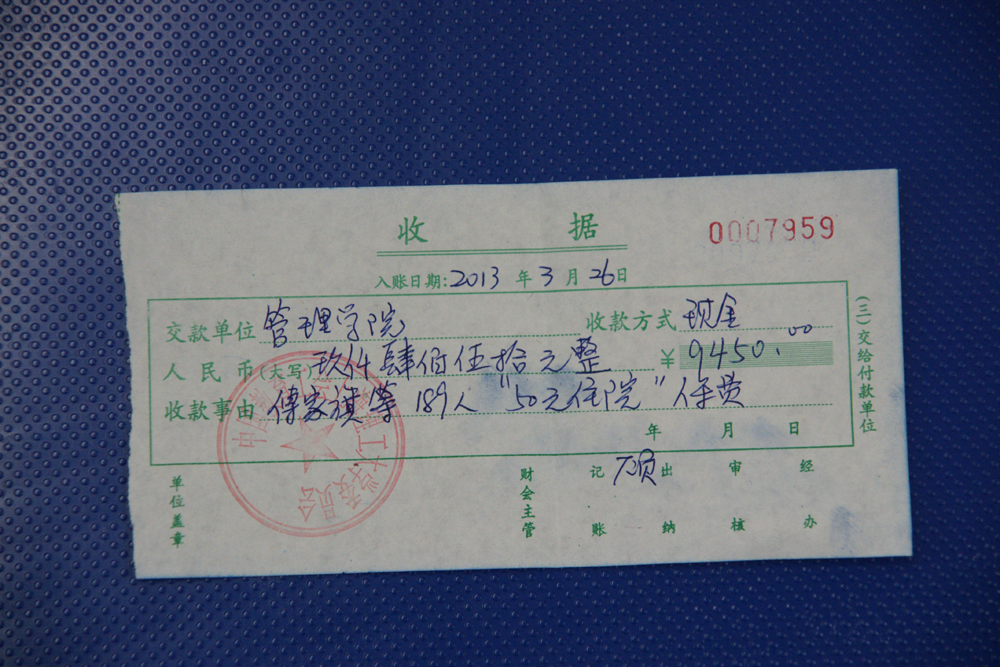 收 据
0007959
入账日期:2013 年 3 月 26 日
交款单位 管理学院 收款方式 现金
人民币(大写) 玖仟肆佰伍拾元整 ¥ 9450.00
收款事由 傅家旗等 189人 "50元住院" 保费
年 月 日
(三)交给付款单位
单位盖章 财会主管 记账 出纳 审核 经办
中国 工 大学委员会